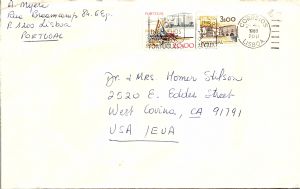 A. Myers
Rua Braamcamp 84. 6 Esq.
P. 1200 Lisboa
PORTUGAL
PORTUGAL
20$00
3$00
LISBOA
Dr. & Mrs Homer Stilson
2520 E. Eddes Street
West Covina, CA 91791
USA / EUA